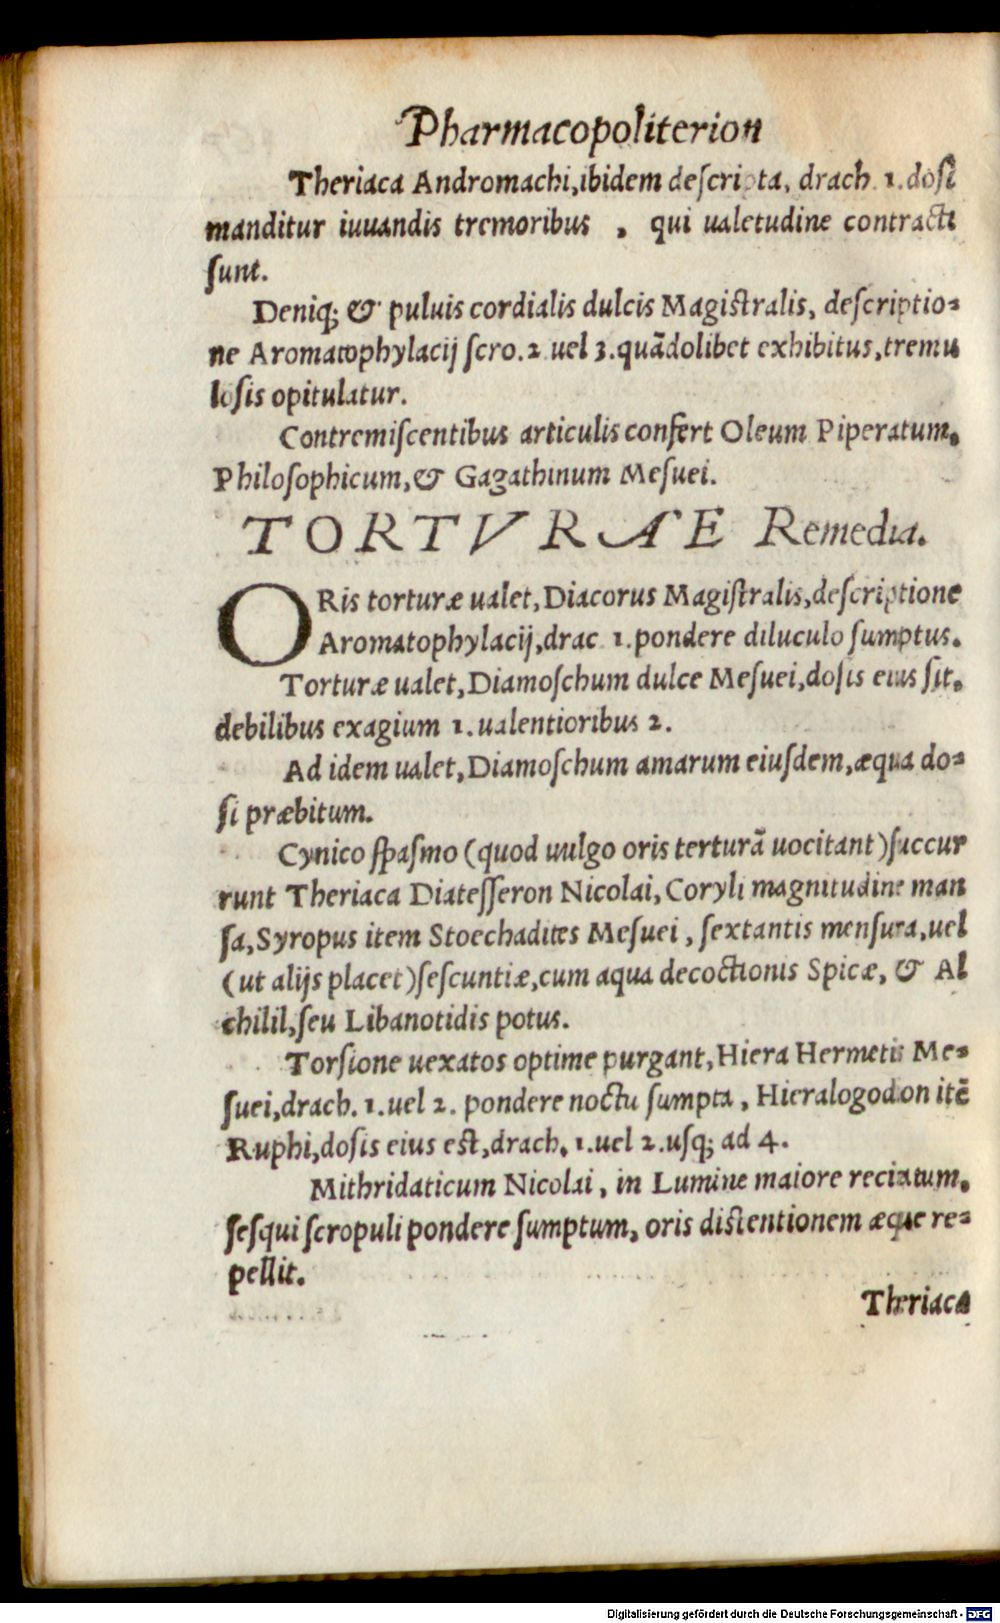 Pharmacopoliterion
Theriaca Andromachi, ibidem deſcripta, drach. 1. doſi
manditur iuuandis tremoribus , qui ualetudine contracti
ſunt.
Deniq; & puluis cordialis dulcis Magiſtralis, deſcriptio-
ne Aromatophylacij ſcro. 2 uel 3. quãdolibet exhibitus, tremu
loſis opitulatur.
Contremiſcentibus articulis confert Oleum Piperatum,
Philoſophicum, & Gagathinum Meſuei.
TORTVRAE Remedia.
ORis torturæ ualet, Diacorus Magiſtralis, deſcriptione
Aromatophylacij, drac. 1. pondere diluculo ſumptus.
Torturæ ualet, Diamoſchum dulce Meſuei, doſis eius ſit,
debilibus exagium 1. ualentioribus 2.
Ad idem ualet, Diamoſchum amarum eiuſdem, æqua do-
ſi præbitum.
Cynico ſpaſmo (quod uulgo oris terturã uocitant) ſuccur
runt Theriaca Diateſſeron Nicolai, Coryli magnitudine man
ſa, Syropus item Stoechadites Meſuei, ſextantis menſura, uel
(ut alijs placet) ſeſcuntiæ, cum aqua decoctionis Spicæ, & Al
chilil, ſeu Libanotidis potus.
Torſione uexatos optime purgant, Hiera Hermetis Me-
ſuei, drach. 1. uel 2. pondere noctu ſumpta, Hieralogodon itẽ
Ruphi, doſis eius eſt, drach. 1. uel 2. uſq; ad 4.
Mithridaticum Nicolai, in Lumine maiore recitatum,
ſeſqui ſcropuli pondere ſumptum, oris diſtentionem æque re-
pellit.
Theriaca
Digitalisierung gefördert durch die Deutsche Forschungsgemeinschaft - DFG